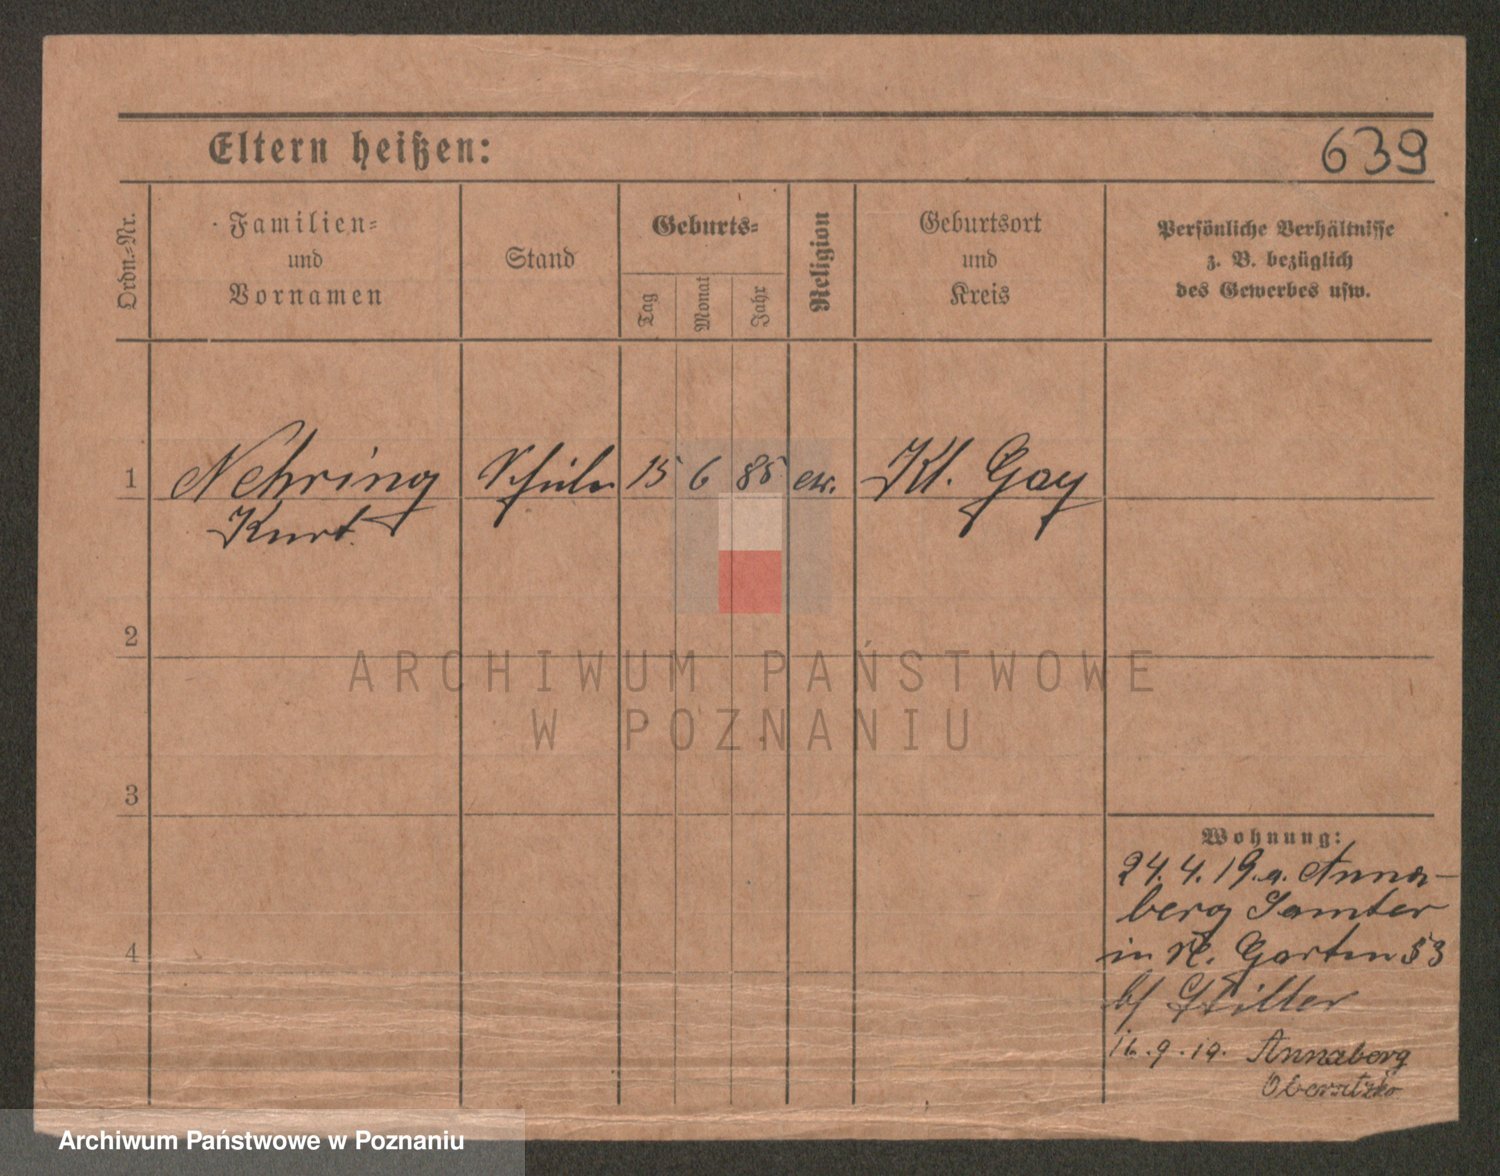 Eltern heißen:
639
Ordn.-Nr.
Familien-
und
Vornamen
Stand
Geburts-
Tag
Monat
Jahr
Religion
Geburtsort
und
Kreis
Persönliche Verhältnisse
z. B. bezüglich
des Gewerbes usw.
1 Nehring Schüler 15 6 85 ev. Kl. Gay
Kurt.
2
3
4
ARCHIWUM PAŃSTWOWE
W POZNANIU
Wohnung:
24. 4. 19. a. Anna-
berg Samter
in Kl. Garten 53
b/ Stiller
16. 9. 19. Annaberg
Obersitzko
Archiwum Państwowe w Poznaniu